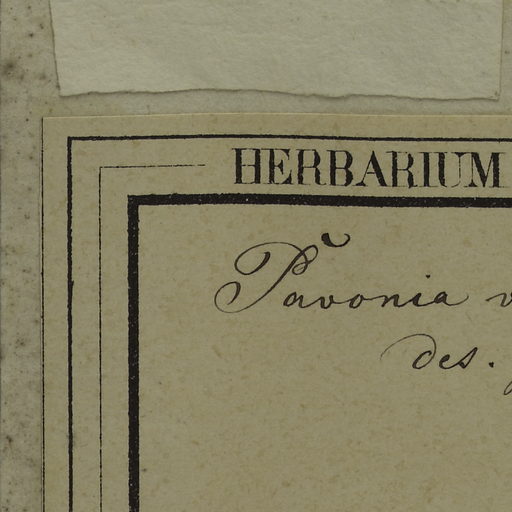 HERBARIUM
Pavonia
des.